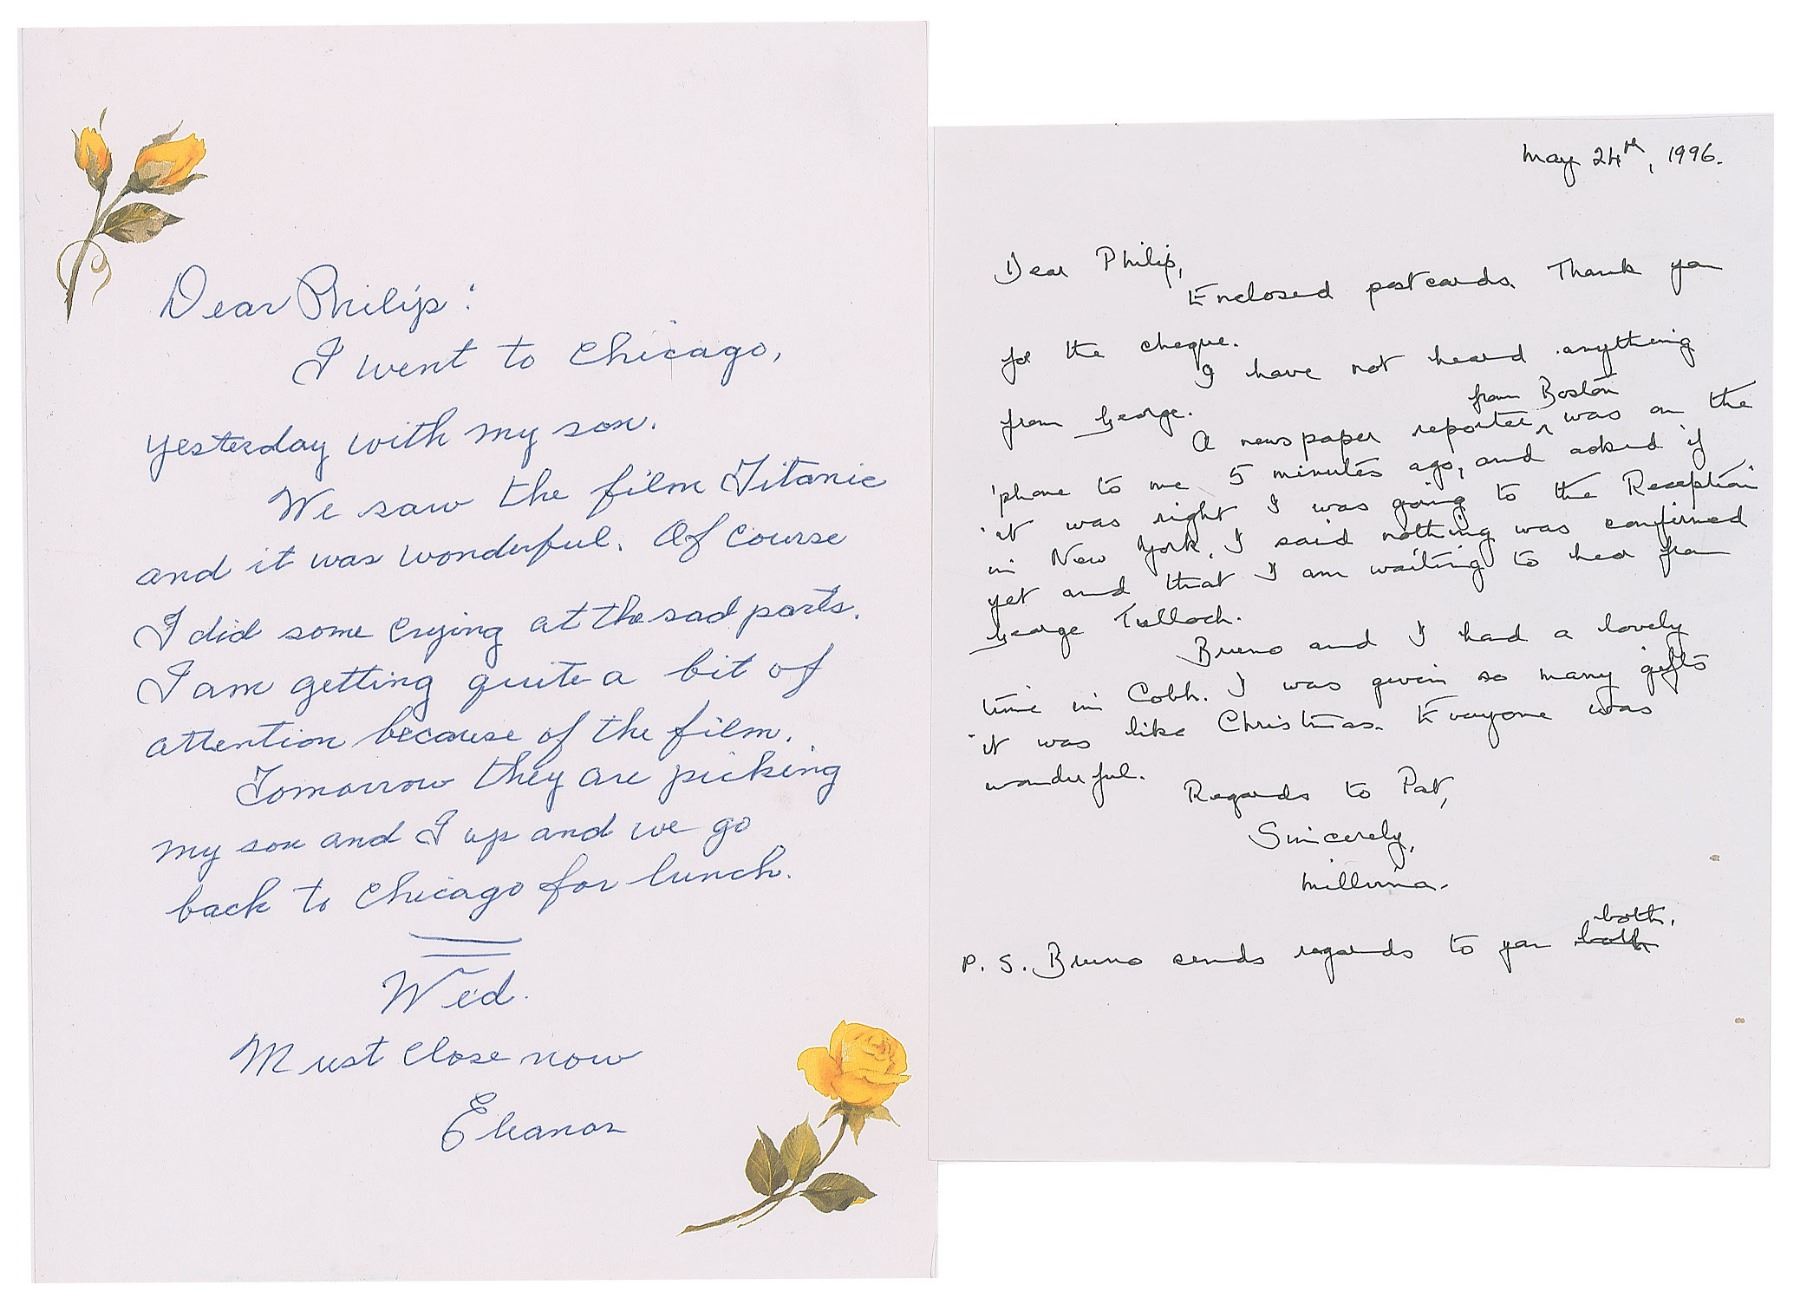 Dear Philip:
I went to Chicago,
yesterday with my son.
We saw the film Titanic
and it was wonderful. Of course
I did some crying at the sad parts.
I am getting quite a bit of
attention because of the film.
Tomorrow they are picking
my son and I up and we go
back to Chicago for lunch.
Wed.
Must close now
Eleanor
May 24th, 1996.
Dear Philip,
Enclosed postcards. Thank you
for the cheque.
I have not heard anything
from George.
from Boston
A newspaper reporter ^ was on the
'phone to me 5 minutes ago, and asked if
it was right I was going to the Reception
in New York. I said nothing was confirmed
yet and that I am waiting to hear from
George Tulloch.
Bruno and I had a lovely
time in Cobh. I was given so many gifts
it was like Christmas. Everyone was
wonderful.
Regards to Pat,
Sincerely,
Millvina.
both.
P. S. Bruno sends regards to you both